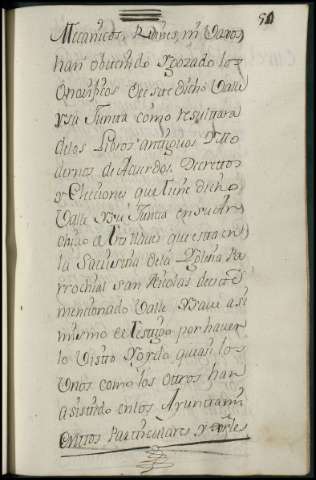 50
Mecanicos, Ruines, ni Vajos
han obtenido y gozado los
onorificos de este dicho Valle
y su Junta como resultara
de los Libros antiguos y Mo
dernos de Acuerdos, Decretos
y Elecciones que tiene dicho
Valle y su Junta en su Ar
chivo a tres llaves que esta en
la Sacristia de la Yglesia Pa
rrochial san Nicolas de este
mencionado Valle y save asi
mismo el testigo por haver
lo visto y oydo que asi los
Unos como los otros han
asistido en los Ayuntami
entos Particulares y